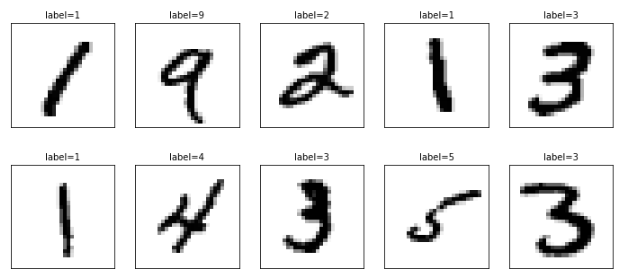 label=1 label=9 label=2 label=1 label=3
1 9 2 1 3
label=1 label=4 label=3 label=5 label=3
1 4 3 5 3